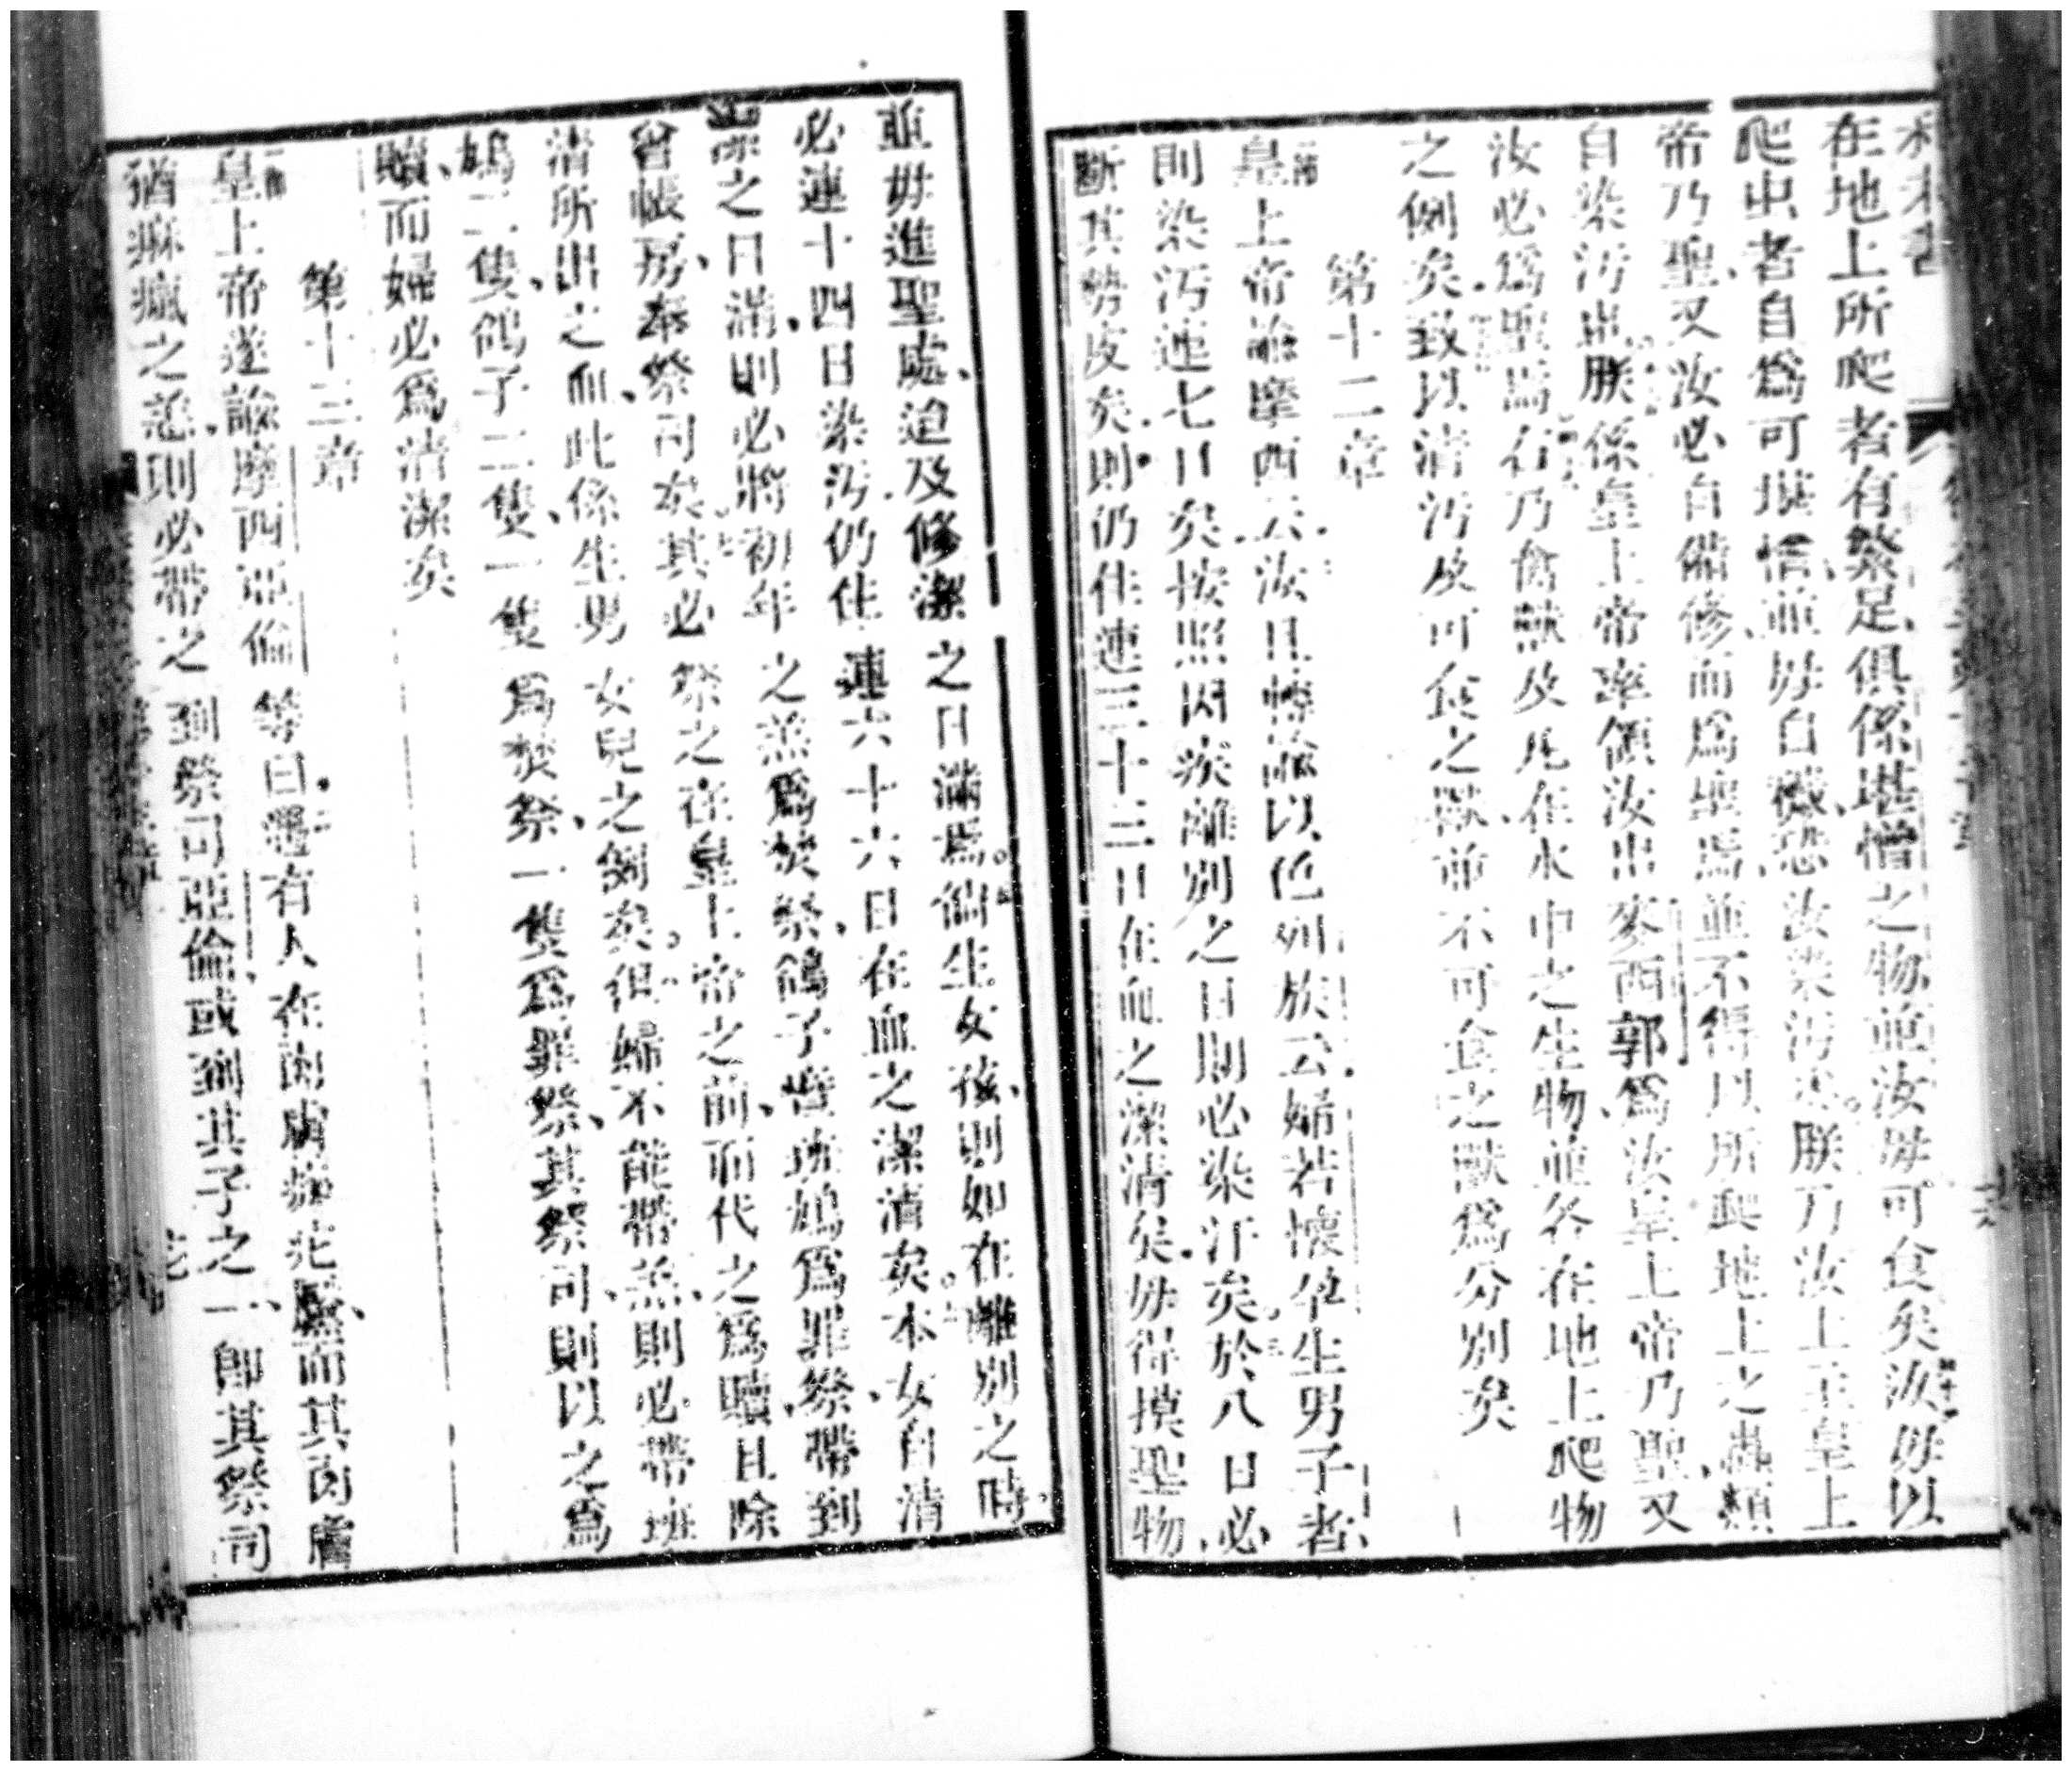 在地上所爬者有繁足俱係堪憎之物並汝毋可食矣汝毋以
爬虫者自為可堪惜並毋自穢恐汝染汚也朕乃汝上主皇上
帝乃聖又汝必自備修而為聖焉並不得以所爬地上之蟲類
自染汚也朕係皇上帝率領汝出麥西郭為汝皇上帝乃聖又
汝必為聖焉右乃禽獸及凡在水中之生物並各在地上爬物
之例矣致以清汚及可食之獸並不可食之獸為分別矣
第十二章
皇上帝諭摩西云汝且轉諭以色列族云婦若懷孕生男子者
則染汚連七日矣按照因疾離別之日則必染汙矣於八日必
斷其勢皮矣則仍住連三十三日在血之潔清矣毋得摸聖物
並毋進聖處迨及修潔之日滿焉倘生女孩則如在離別之時
必連十四日染汚仍住連六十六日在血之潔清矣本女自清
潔之日滿則必將初年之羔為焚祭鴿子暨班鳩為罪祭帶到
會帳房奉祭司矣其必祭之在皇上帝之前而代之為贖且除
清所出之血此係生男女兒之例矣但婦不能帶羔則必帶班
鳩二隻鴿子二隻一隻為焚祭一隻為罪祭其祭司則以之為
贖而婦必為清潔矣
第十三章
皇上帝遂諭摩西亞倫等曰遇有人在肉膚瘢疕靨而其肉膚
猶痳瘋之恙則必帶之到祭司亞倫或到其子之一即其祭司